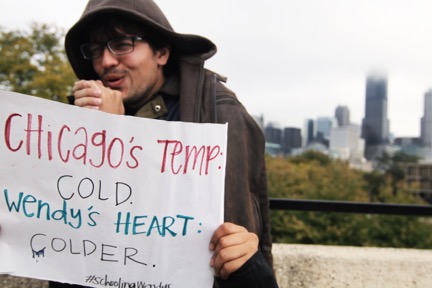 CHicago's Temp:
COLD.
Wendy's HEART:
COLDER.
#schoolingWendys